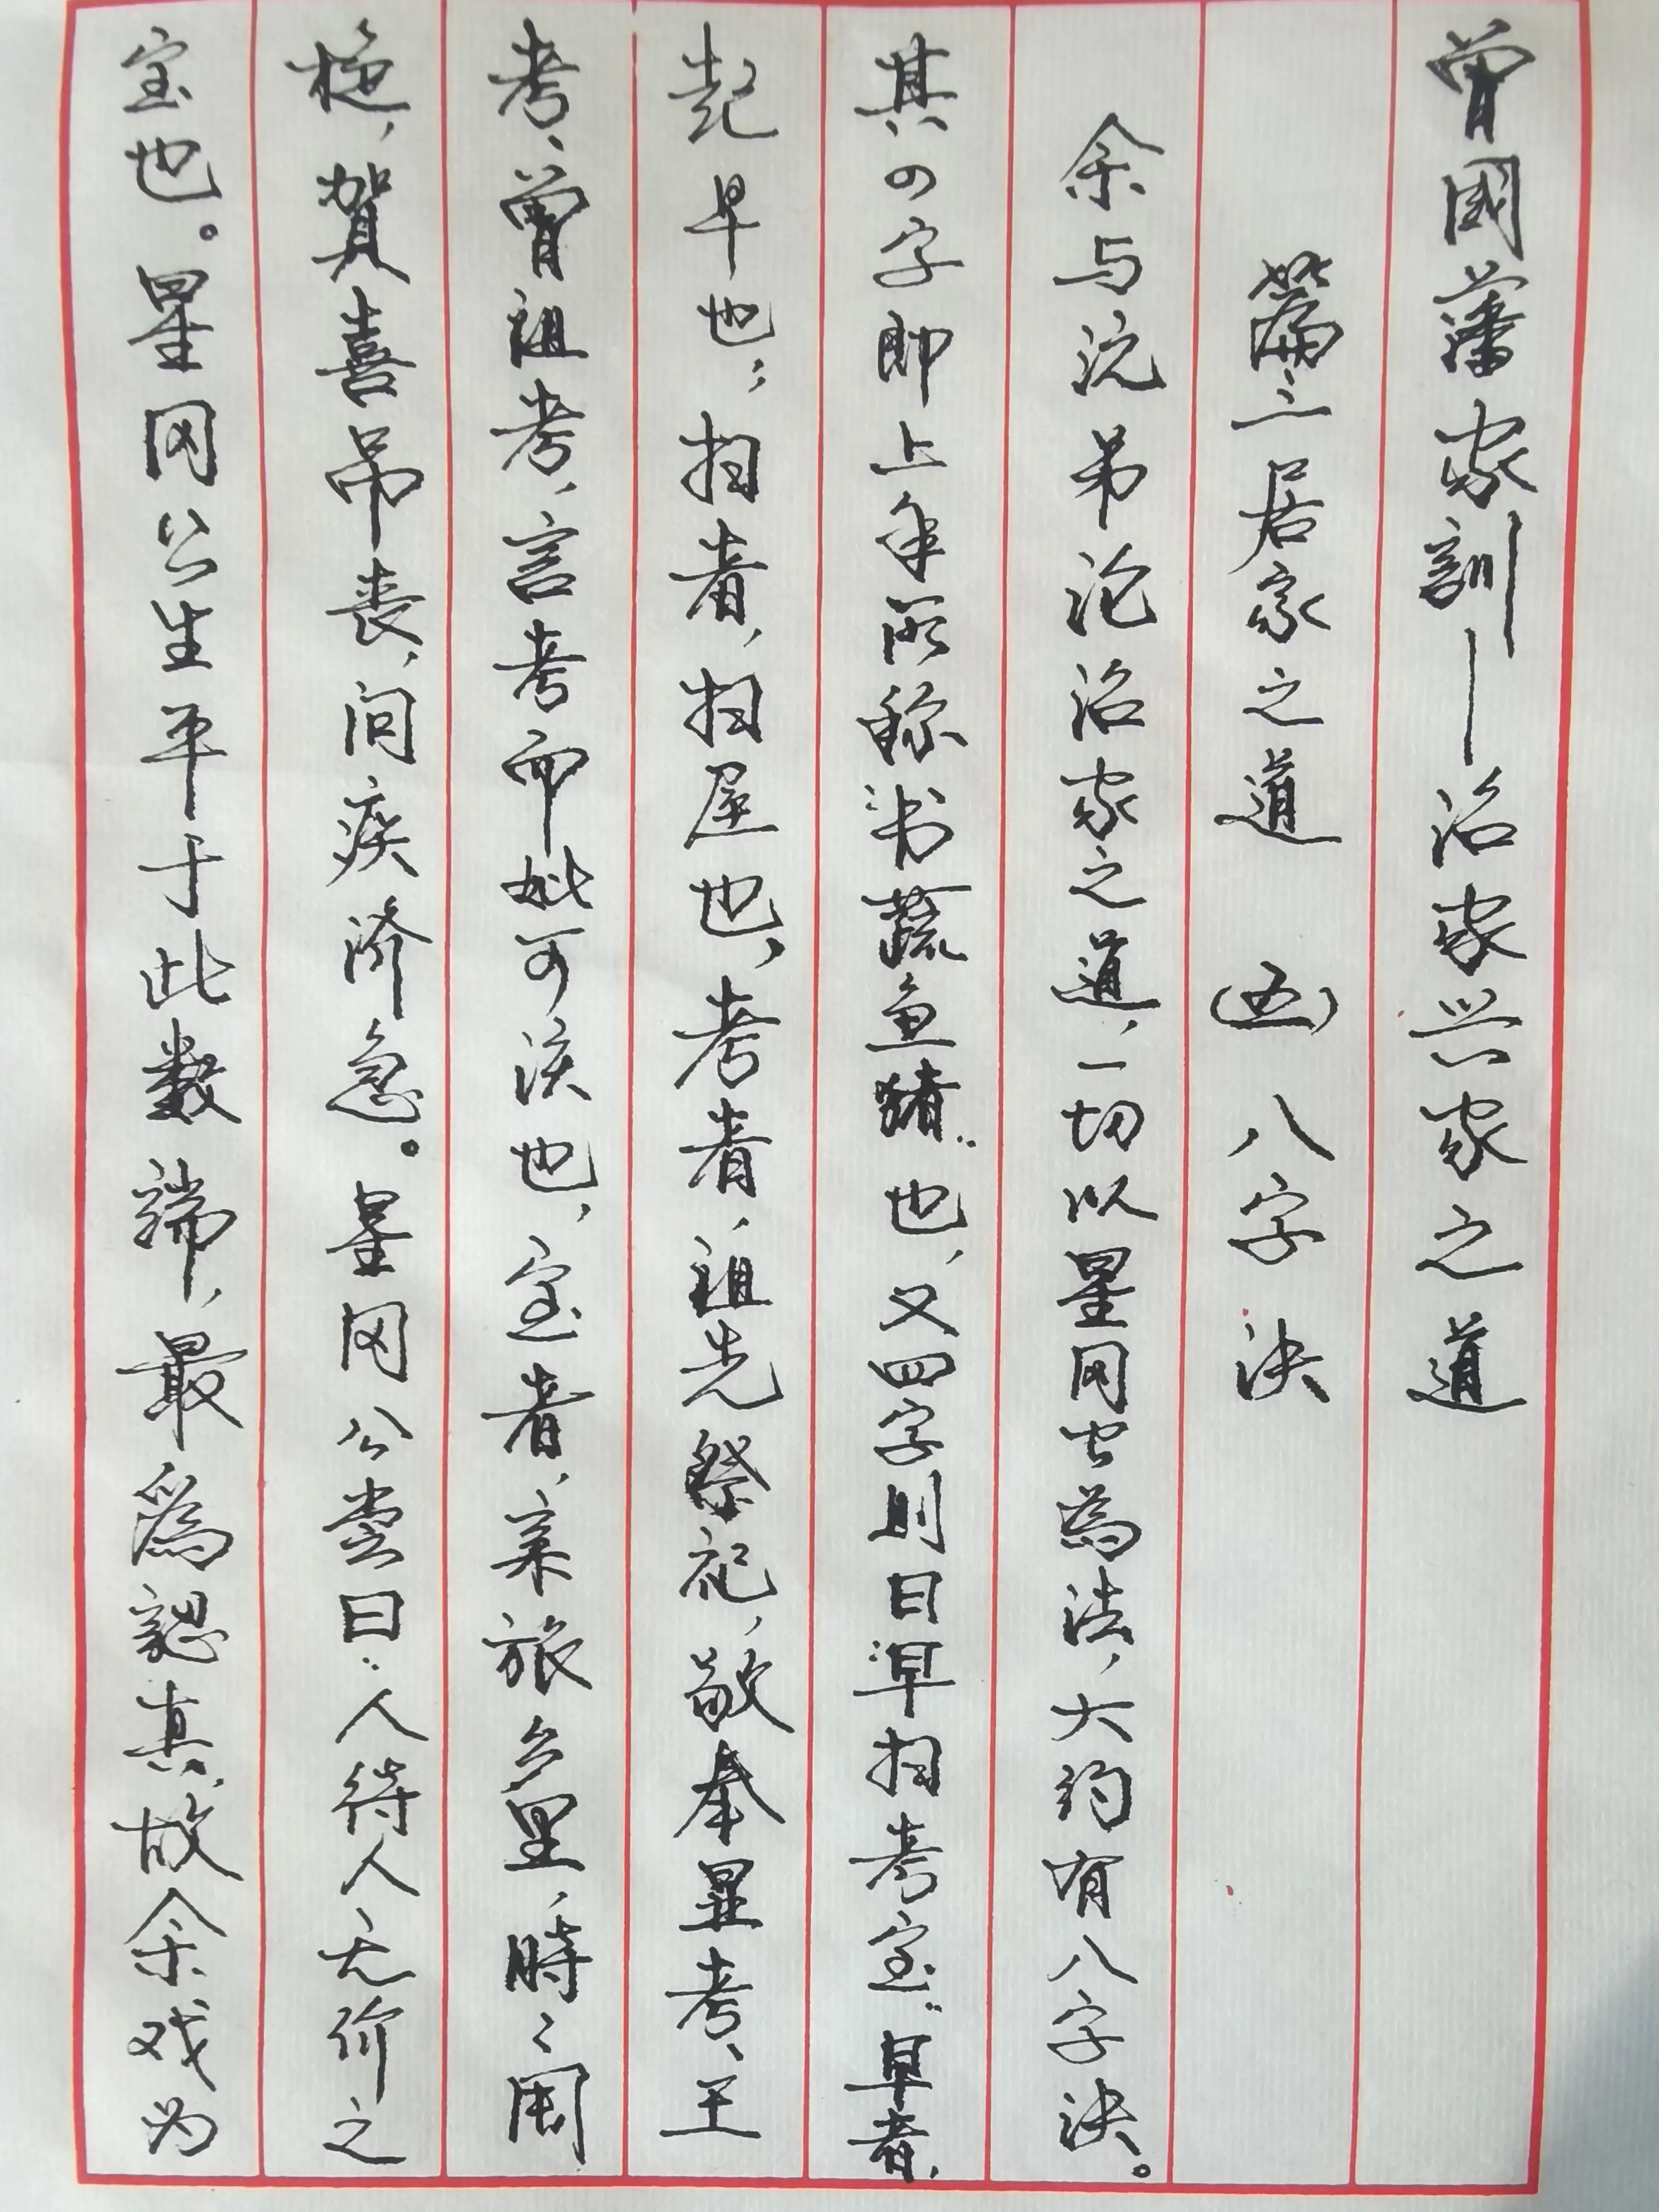 曾國藩家訓——治家兴家之道
篇三居家之道 (五) 八字决
余与沅弟论治家之道,一切以星冈公為法,大约有八字决。
其四字即上年所称"书蔬鱼猪"也,又四字则曰"早扫考宝"。早者,
起早也;扫者,扫屋也,考者,祖先祭祀,敬奉显考、王
考、曾祖考,言考而妣可该也,宝者,亲族乡里,時々周
旋,賀喜吊丧,问疾济急。星冈公尝曰:人待人无价之
宝也。星冈公生平于此数端,最為認真,故余戏为